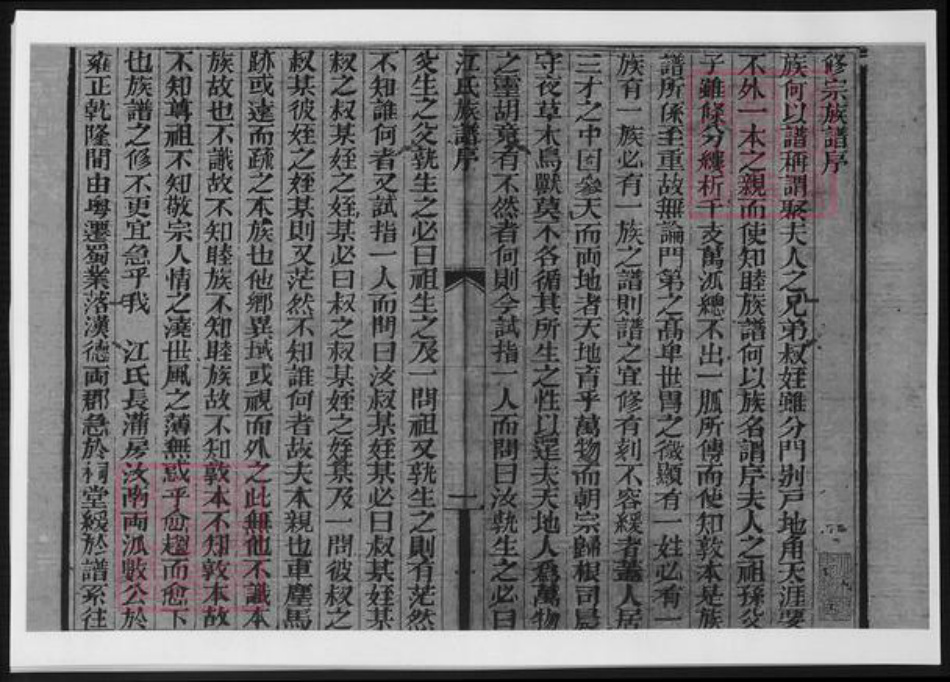 修宗族譜序
族何以譜稱謂聚夫人之兄弟叔姪雖分門別戶地角天涯要
不外一本之親而使知睦族譜何以族名謂序夫人之祖孫父
子雖條分縷析千支萬派總不出一脈所傳而使知敦本是族
譜所係至重故無論門第之高卑世冑之微顯有一姓必有一
族有一族必有一族之譜則譜之宜修有刻不容緩者蓋人居
三才之中固參天而兩地者天地育乎萬物而朝宗歸根司晨
守夜草木鳥獸莫不各循其所生之性以遂夫天地人為萬物
之靈胡竟有不然者何則今試指一人而問曰汝孰生之必曰
江氏族譜序
一
父生之父孰生之必曰祖生之及一問祖又孰生之則有茫然
不知誰何者又試指一人而問曰汝叔某姪某必曰叔某姪某
叔之叔某姪之姪某必曰叔之叔某姪之姪某及一問彼叔之
叔某彼姪之姪某則又茫然不知誰何者故夫本親也車塵馬
跡或遠而疏之本族也他鄉異域或視而外之此無他不識本
族故也不識故不知睦族不知睦族故不知敦本不知敦本故
不知尊祖不知敬宗人情之澆世風之薄無惑乎愈趨而愈下
也族譜之修不更宜急乎我　江氏長蒲房汝南兩派數公於
雍正乾隆間由粵遷蜀業落漢德兩郡急於祠堂緩於譜系往